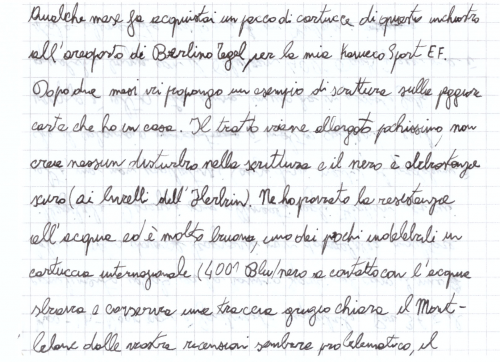 Qualche mese fa acquistai un pacco di cartucce di questo inchiostro
all'areoporto di Berlino Tegel, per la mia Kaweco Sport EF.
Dopo due mesi vi propongo un esempio di scrittura sulla peggiore
carta che ho in casa. Il tratto viene allargato pochissimo, non
crea nessun disturbo nella scrittura e il nero è abbastanza
scuro (ai livelli dell'Herbin). Ne ho provato la resistenza
all'acqua ed è molto buona, uno dei pochi indelebili in
cartuccia internazionale (4001 Blu/nero a contatto con l'acqua
sbava e conserva una traccia grigio chiara, il Mont-
blanc dalle vostre recensioni sembra problematico, il